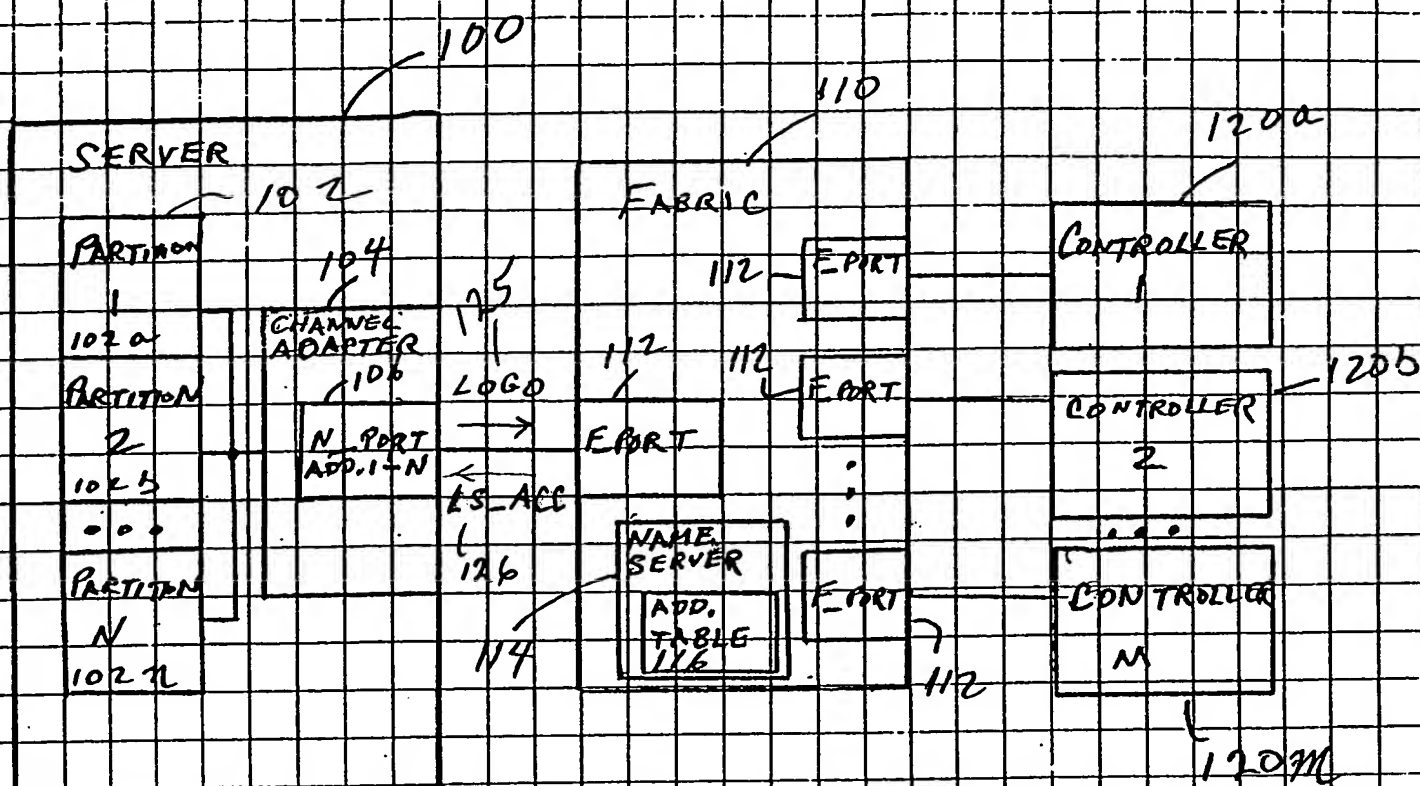 100
SERVER
102
PARTITION
1
102a
PARTITION
2
102b
PARTITON
N
102n
104
CHANNEL
ADAPTER
106
N_PORT
ADD. 1-N
125
LOGO
LS_ACC
126
110
FABRIC
112
F_PORT
112
F_PORT
112
F_PORT
F_PORT
112
NAME
SERVER
ADD.
TABLE
116
114
120a
CONTROLLER
1
120b
CONTROLLER
2
CONTROLLER
M
120m